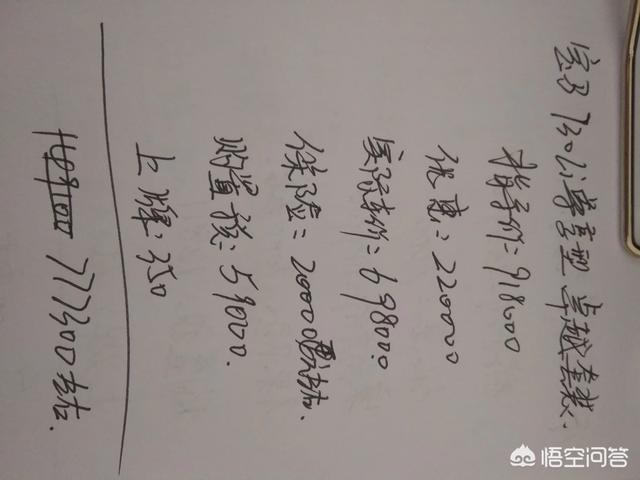 宝马730Li尊享型 卓越套装.
指导价=918000
优惠=220000
实际车价=698000.
保险=20000左右.
购置税=59000.
上牌=350
777300左右.
悟空问答